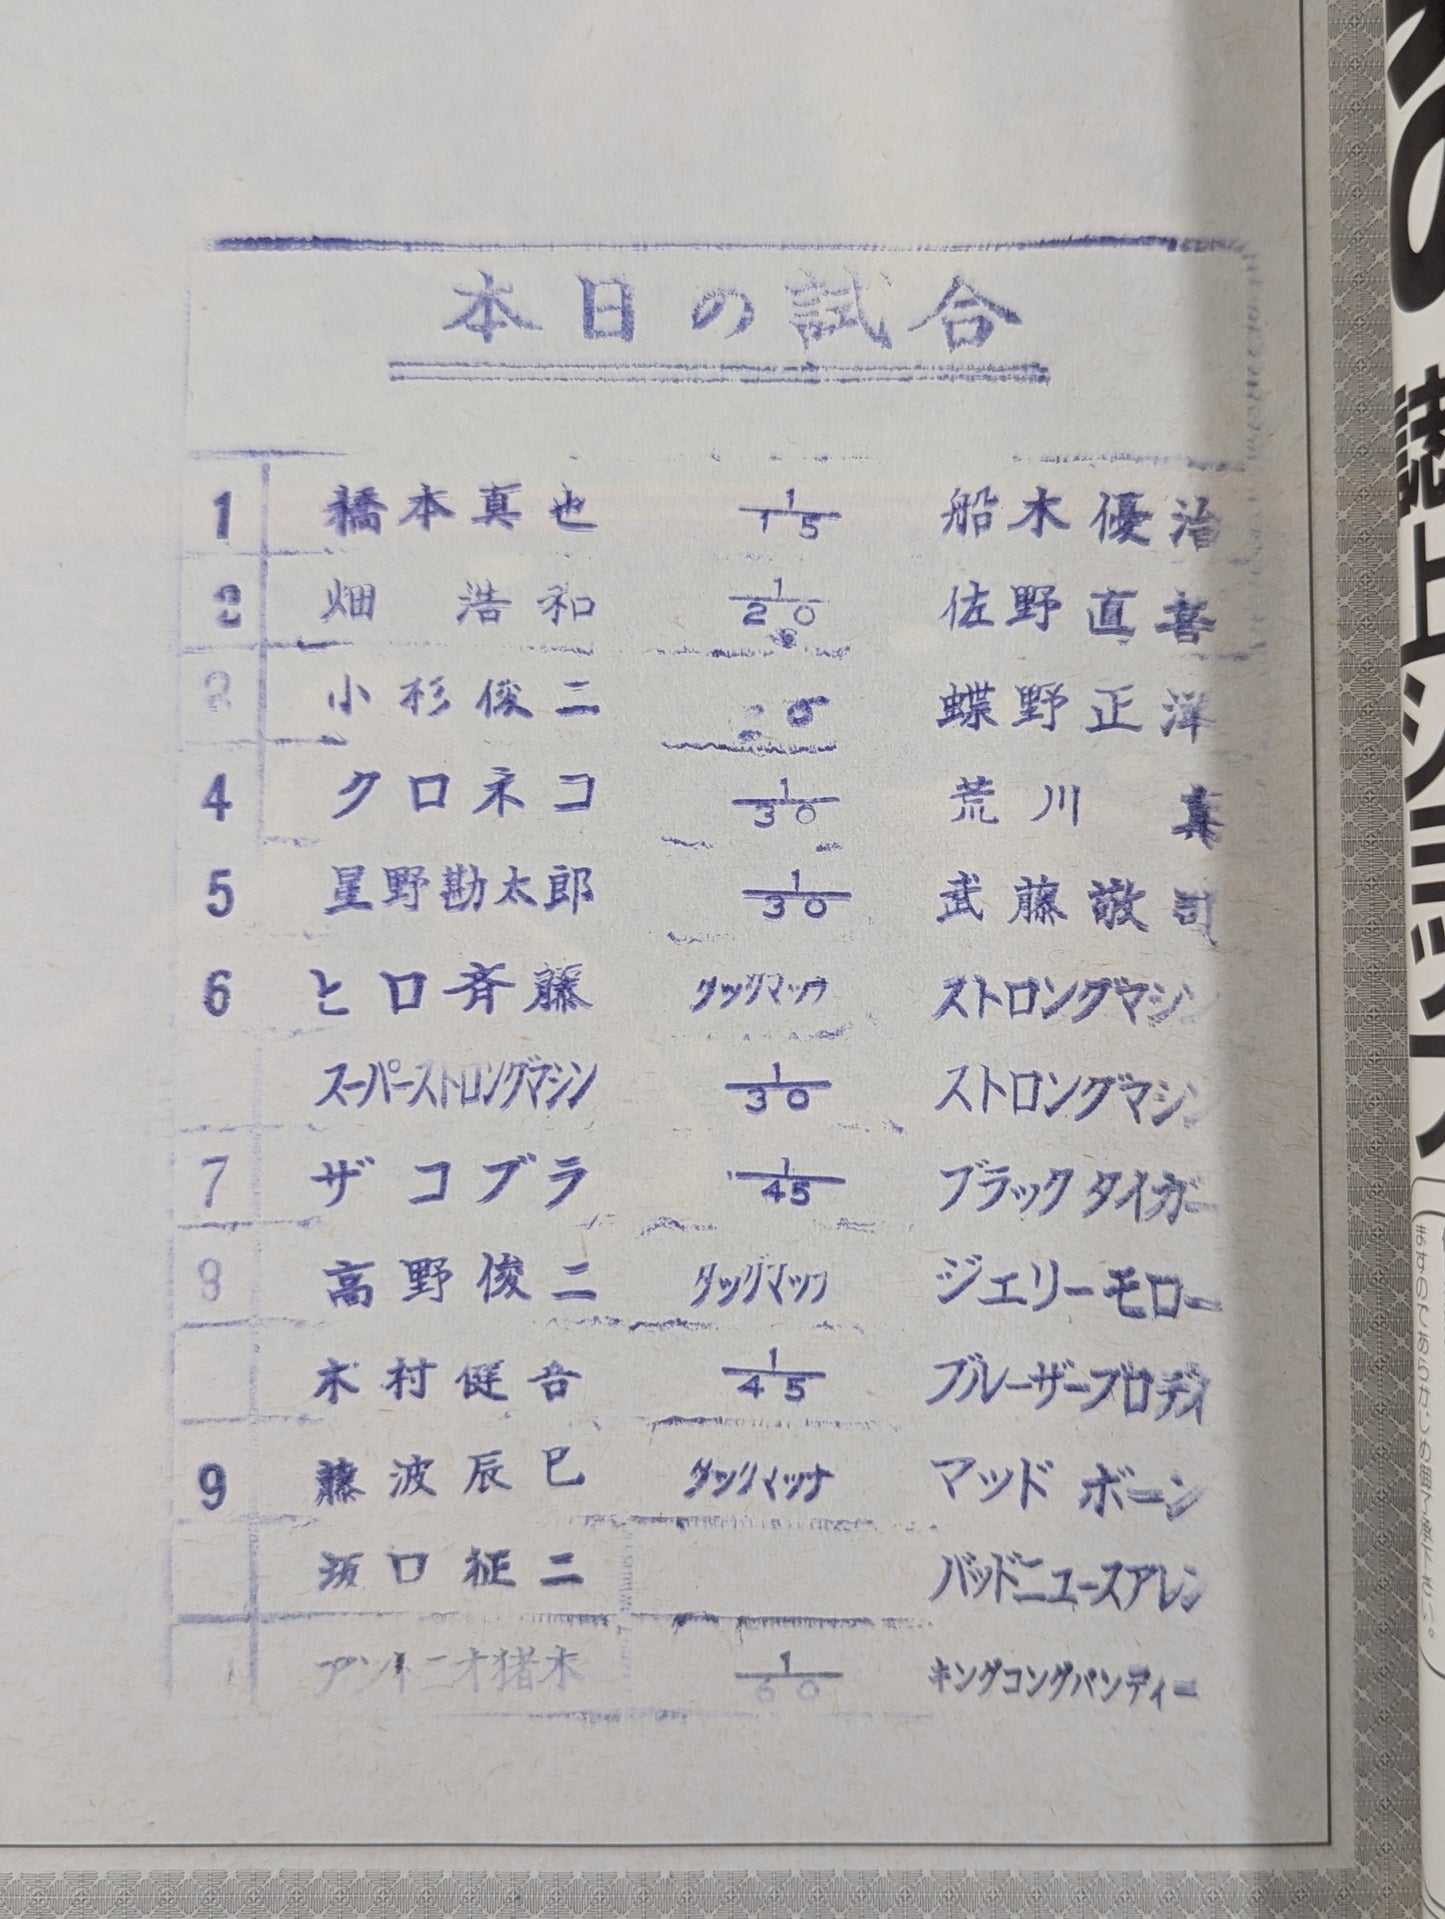 本日の試合
1 橋本真也 1/15 船木優治
2 畑 浩和 1/20 佐野直喜
3 小杉俊二 蝶野正洋
4 クロネコ 1/30 荒川 真
5 星野勘太郎 1/30 武藤敬司
6 ヒロ斉藤 タッグマッチ ストロングマシン
スーパーストロングマシン 1/30 ストロングマシン
7 ザコブラ 1/45 ブラックタイガー
8 高野俊二 タッグマッチ ジェリーモロー
木村健吾 1/45 ブルーザーブロディ
9 藤波辰巳 タッグマッチ マッドボーン
坂口征二 バッドニュースアレン
アントニオ猪木 1/60 キングコングバンディー
誌上